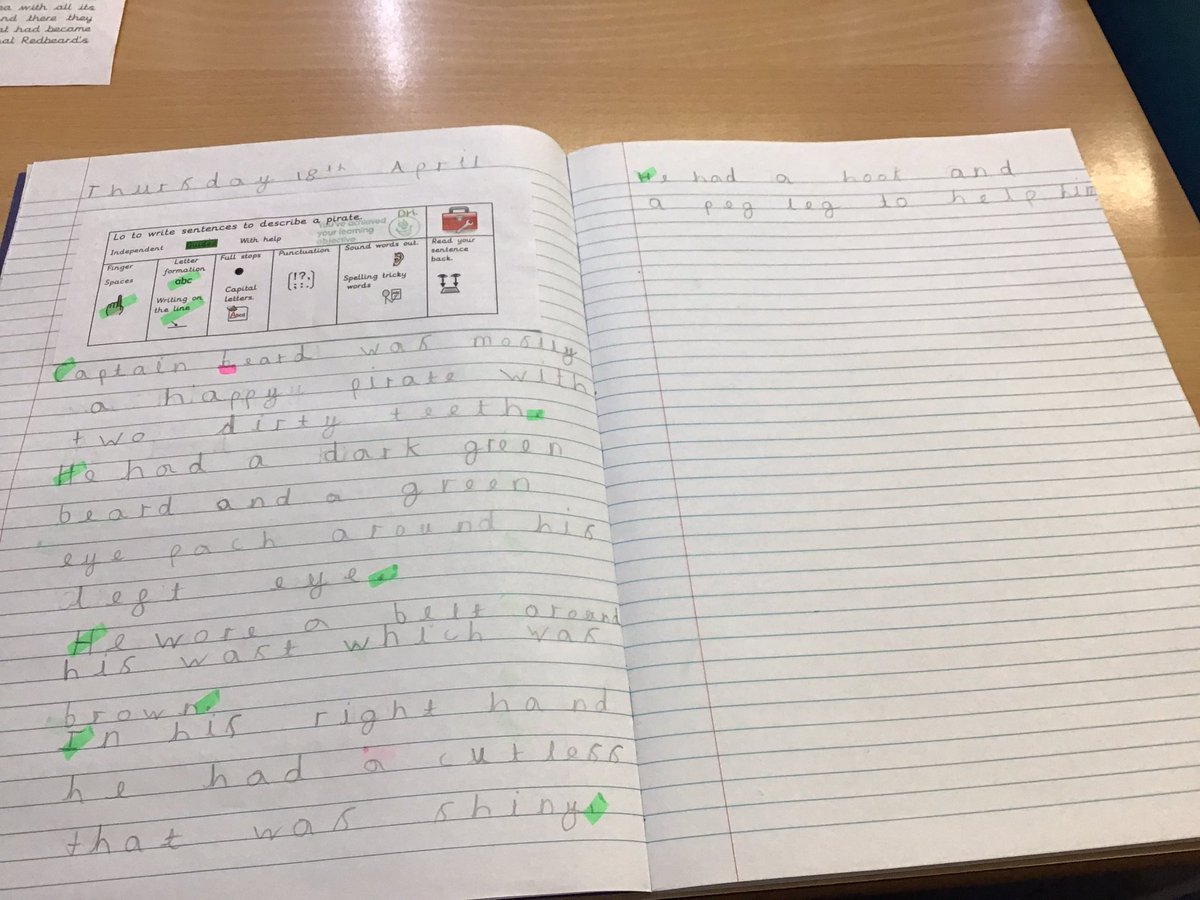 ea with all its
nd there they
at had become
nal Redbeard's
Thursday 18th April
Lo to write sentences to describe a pirate.
You've achieved your learning objective
DH.
Independent Guided With help
Finger Spaces
Letter formation
abc
Writing on the line
Full stops
Capital letters.
Punctuation
(!?,;:.)
Sound words out.
Spelling tricky words
Read your sentence back.
Captain beard was mostly
a happy pirate with
two dirty teeth.
He had a dark green
beard and a green
eye pach around his
left eye.
He wore a belt around
his wast which was
brown.
In his right hand
he had a cutless
that was shiny.
He had a hook and
a peg leg to help him